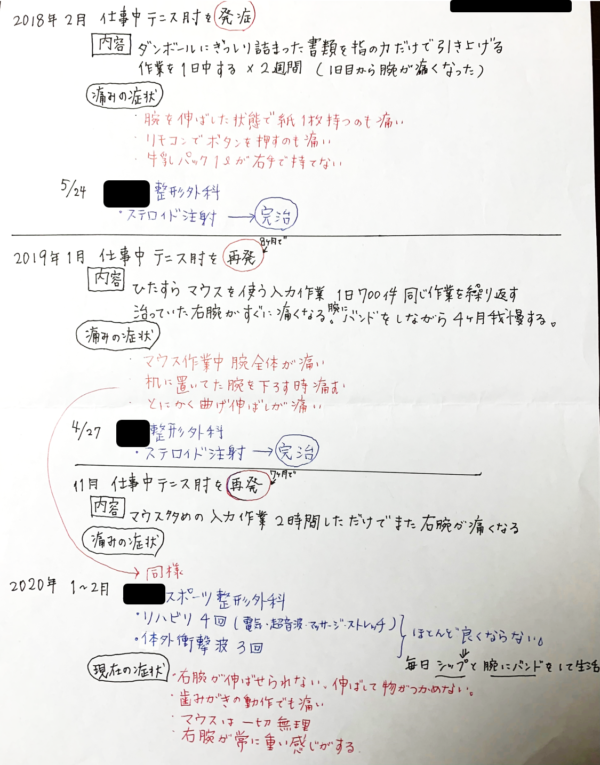 2018年2月 仕事中テニス肘を発症
内容 ダンボールにぎっしり詰まった書類を指の力だけで引き上げる
作業を1日中する × 2週間 (1日目から腕が痛くなった)
痛みの症状
・腕を伸ばした状態で紙1枚持つのも痛い
・リモコンでボタンを押すのも痛い
・牛乳パック1ℓが右手で持てない
5/24 整形外科
・ステロイド注射 → 完治
8ヶ月で
2019年1月 仕事中テニス肘を再発
内容 ひたすらマウスを使う入力作業 1日700件 同じ作業を繰り返す
治っていた右腕がすぐに痛くなる。腕にバンドをしながら4ヶ月我慢する。
痛みの症状
・マウス作業中腕全体が痛い
・机に置いてた腕を下ろす時痛む
・とにかく曲げ伸ばしが痛い
4/27 整形外科
・ステロイド注射 → 完治
7ヶ月で
11月 仕事中テニス肘を再発
内容 マウス多めの入力作業2時間しただけでまた右腕が痛くなる
痛みの症状
→ 同様
2020年 1~2月 スポーツ整形外科
・リハビリ4回(電気・超音波・マッサージ・ストレッチ)
・体外衝撃波3回
ほとんど良くならない。
↓
毎日シップと腕にバンドをして生活
現在の症状
・右腕が伸ばせられない。伸ばして物がつかめない。
・歯みがきの動作でも痛い
・マウスは一切無理
・右腕が常に重い感じがする